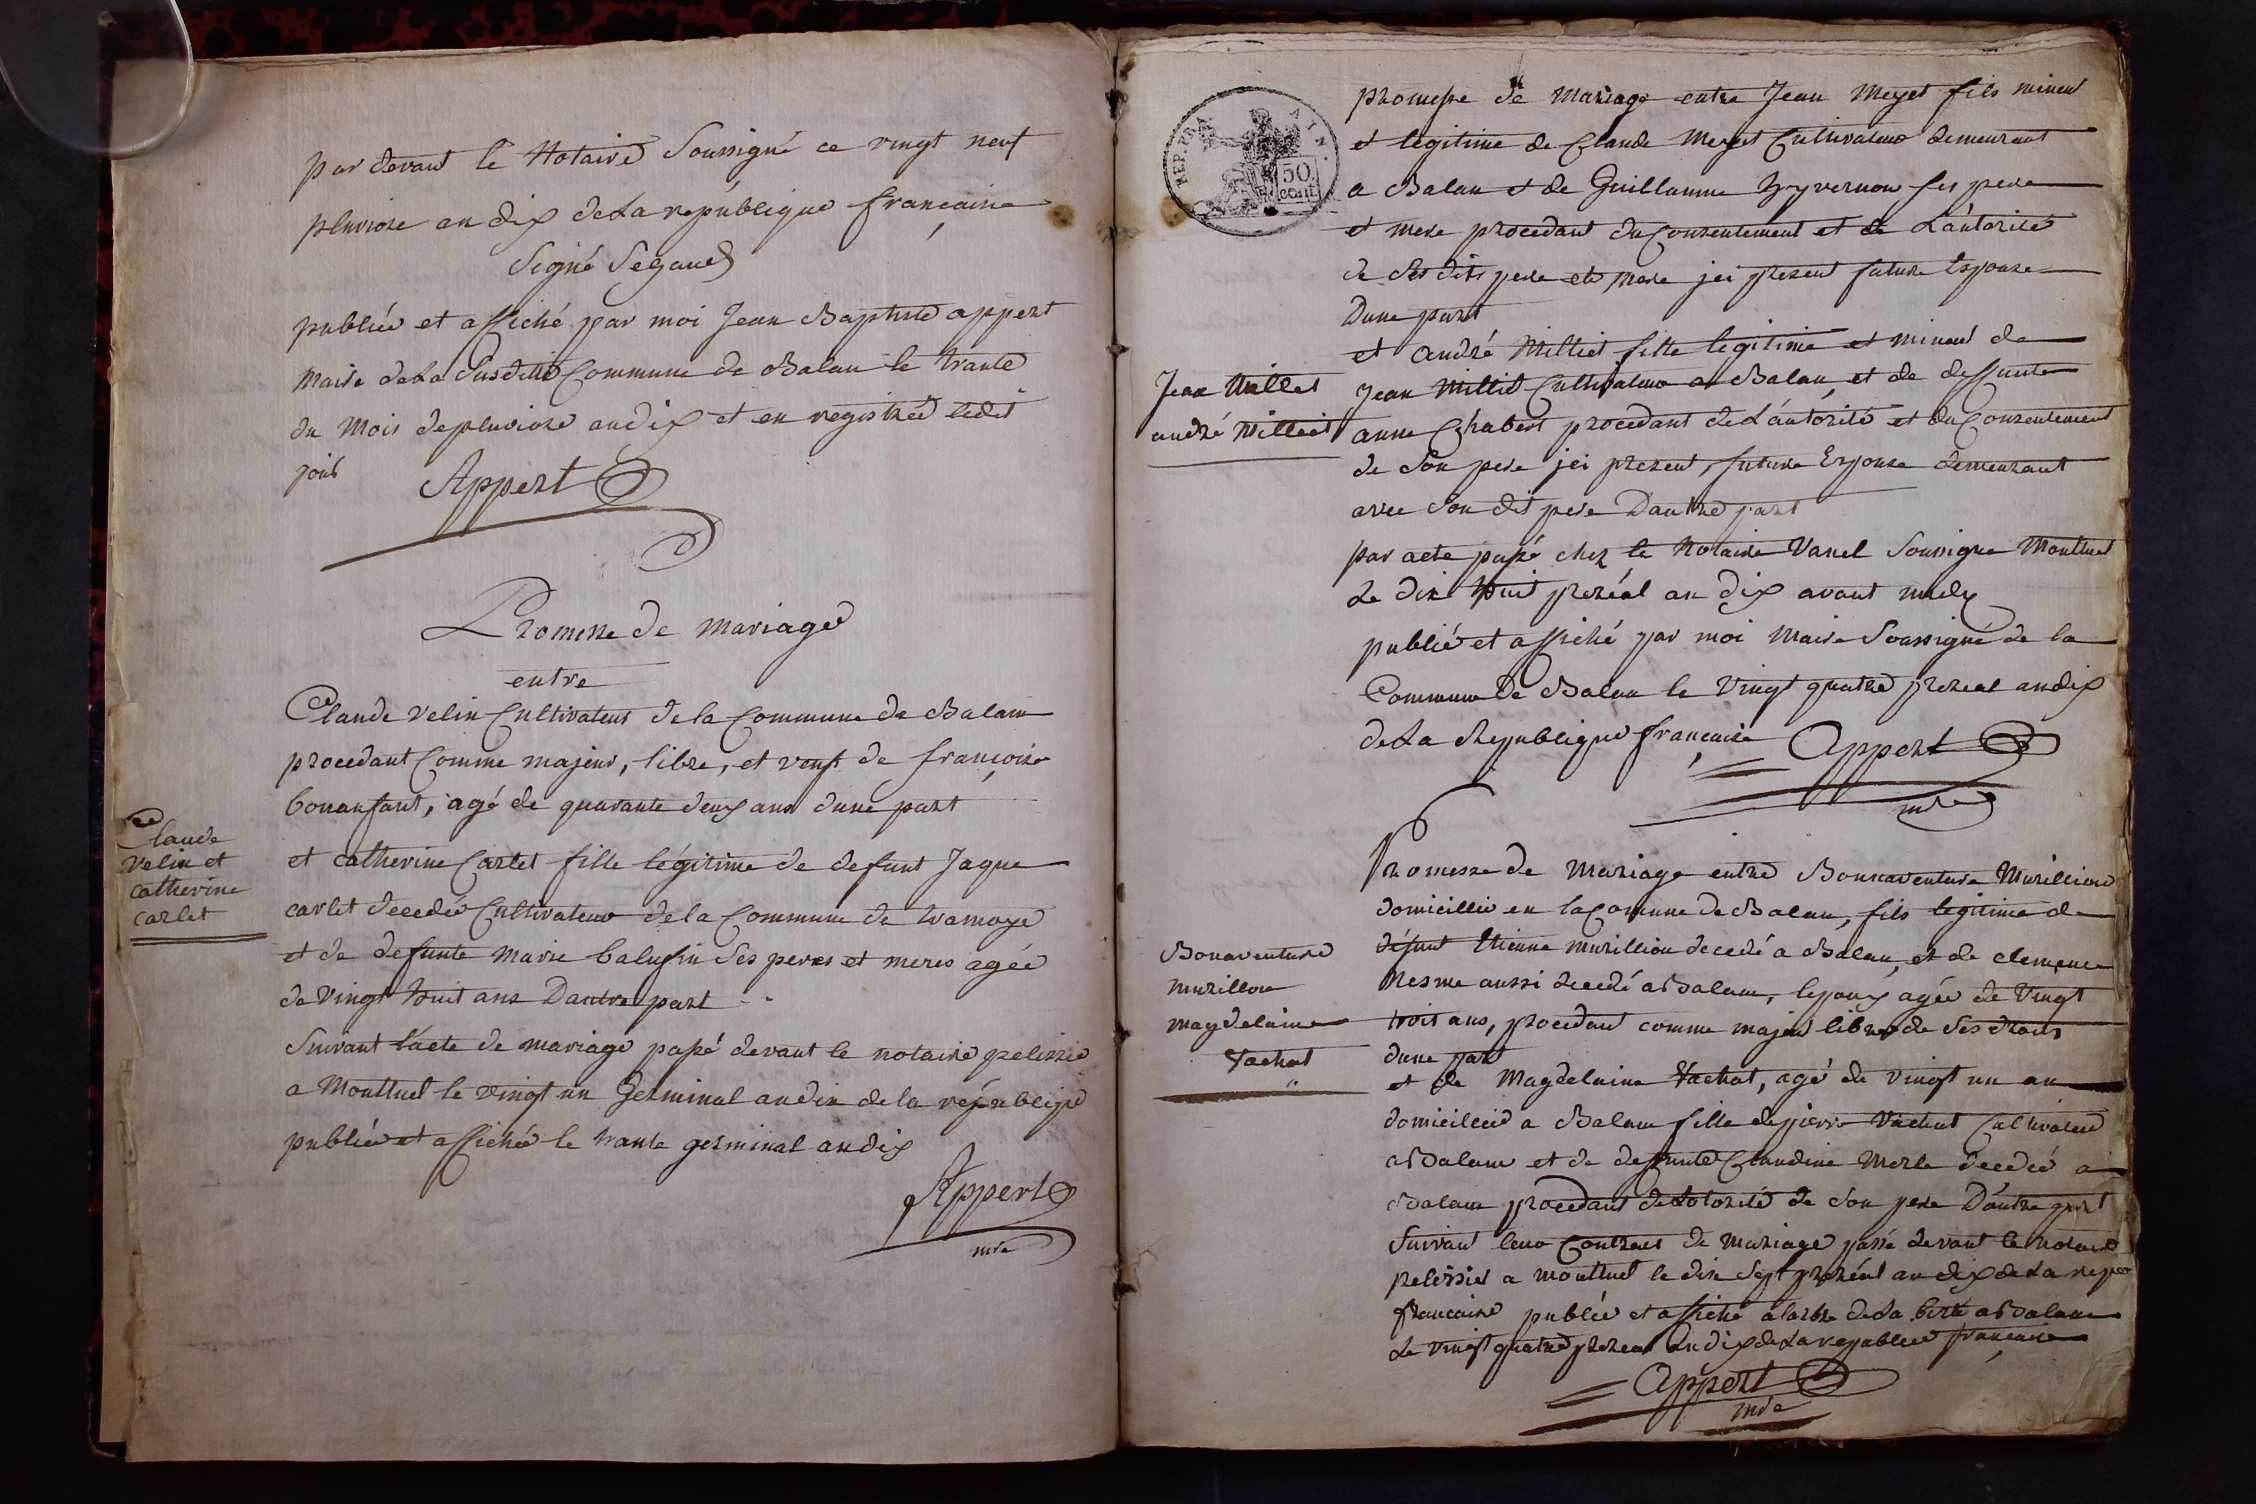 par devant le Notaire Soussigné ce vingt neuf
pluviose an dix de La république françaisse
Signé Segaud
publiée et affiché par moi Jean Baptiste appert
Maire de La Susditte Commune de Balan le trante
du Mois de pluviose an dix et en registrée ledit
jour Appert
Promesse de Mariage
entre
Claude Velin Cultivateur de la Commune de Balam
procedant Comme majeur, libre, et veuf de françoise
bonanfant, agé de quarante deux ans dune part
Claude
Velin et
Catherine
Carlet
et Catherine Carlet fille légitime de defunt Jaque
carlet decedée Cultivateur de la Commune de tramoye
et de defunte Marie balufin Ses peres et meres agée
de Vingt huit ans Dautre part
Suivant l'acte de mariage passé devant le notaire pelissie
a Montluel le vingt un Germinal an dix de la république
publiée et affichée le trante germinal an dix
Appert
mre
REP. FRA. AIN.
50 cent
promesse de Mariage entre Jean Meyet fils mineur
et legitime de Claude Meyet Cultivateur demeurant
a Balan et de Guillaume Gryvernon ses pere
et mere procedant du Consentement et de L'autorité
de Ses dits pere et mere jci present future Espouse
Dune part
et André Milliet fille legitime et mineur de
Jean Millet
andré Milliet
Jean Milliet Cultivateur a Balan et de deffunte
anne Chabert procedant de L'autorité et du Consentement
de Son pere jci present, future Espouse demeurant
avec Son dit pere Dautre part
par acte passé chez le Notaire Vanel Soussigne Montluel
Le dixe huit preréal an dix avant midy
publiée et affiché par moi Maire Soussigné de la
Commune de Balan le Vingt quatre prereal an dix
de La Republique française Appert
mre
Promesse de Mariage entre Bonnaventure Murillion
domicillie en la Comune de Balan, fils legitime de
défunt Etienne murillion decedé a Balan, et de clemence
Bonaventure
murillon
magdelaine
Vachat
Mesme aussi decedé a Balan, lepoux agée de Vingt
trois ans, procedant comme majeur libre de Ses droits
dune part
et de Magdelaine Vachat, agé de vingt un an
domicilieé a Balan fille de pierre Vachat Cultivateur
a Balan et de deffunte Claudine Merle decedeé a
Balan procedant de Lotorité de Son pere D'autre part
Suivant leur Contract de Mariage passé devant le notaire
pelissier a montluel le dix Sept preréal an dix de La repu
francaise publiée et affiché a larbre de La birté a Balan
Le vingt quatre prereal an dix de La republice francaise
Appert
mre